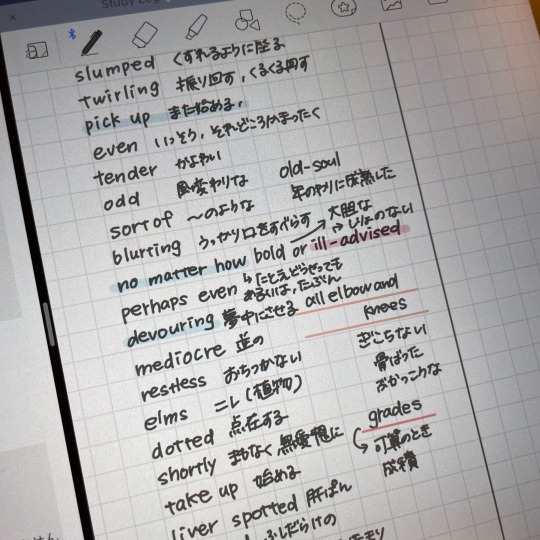 Study Log
slumped くずれるように座る
twirling 振り回す, くるくる回す
pick up また始める,
even いっそう, それどころかまったく
tender かよわい
odd 風変わりな old-soul
sort of 〜のような 年のわりに成熟した
blurting うっかり口をすべらす 大胆な
no matter how bold or ill-advised
perhaps even たとえどうやっても
あるいは, たぶん
devouring 夢中にさせる all elbow and
knees
mediocre 並の ぎこちない
restless おちつかない 骨ばった
elms ニレ(植物) ぶかっこうな
dotted 点在する grades
shortly まもなく 無愛想に 可算のとき
take up 始める 成績
liver spotted 肝ぱん